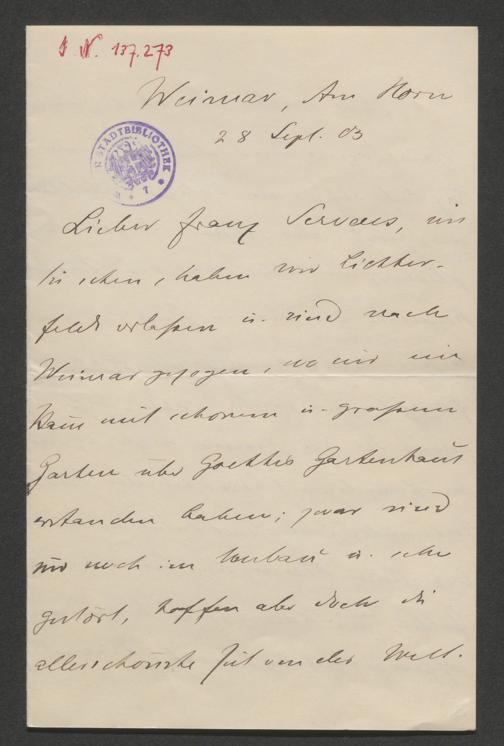 I N. 137.273
Weimar, Am Horn
28 Sept. 03
STADTBIBLIOTHEK
Lieber Franz Servaes, wie
Sie sehen, haben wir Lichter-
felde verlassen u. sind nach
Weimar gezogen, wo wir ein
Haus mit schönem u. grossem
Garten über Goethes Gartenhaus
erstanden haben; zwar sind
wir noch im Umbau u. sehr
gestört, hoffen aber doch die
allerschönste Zeit von der Welt.